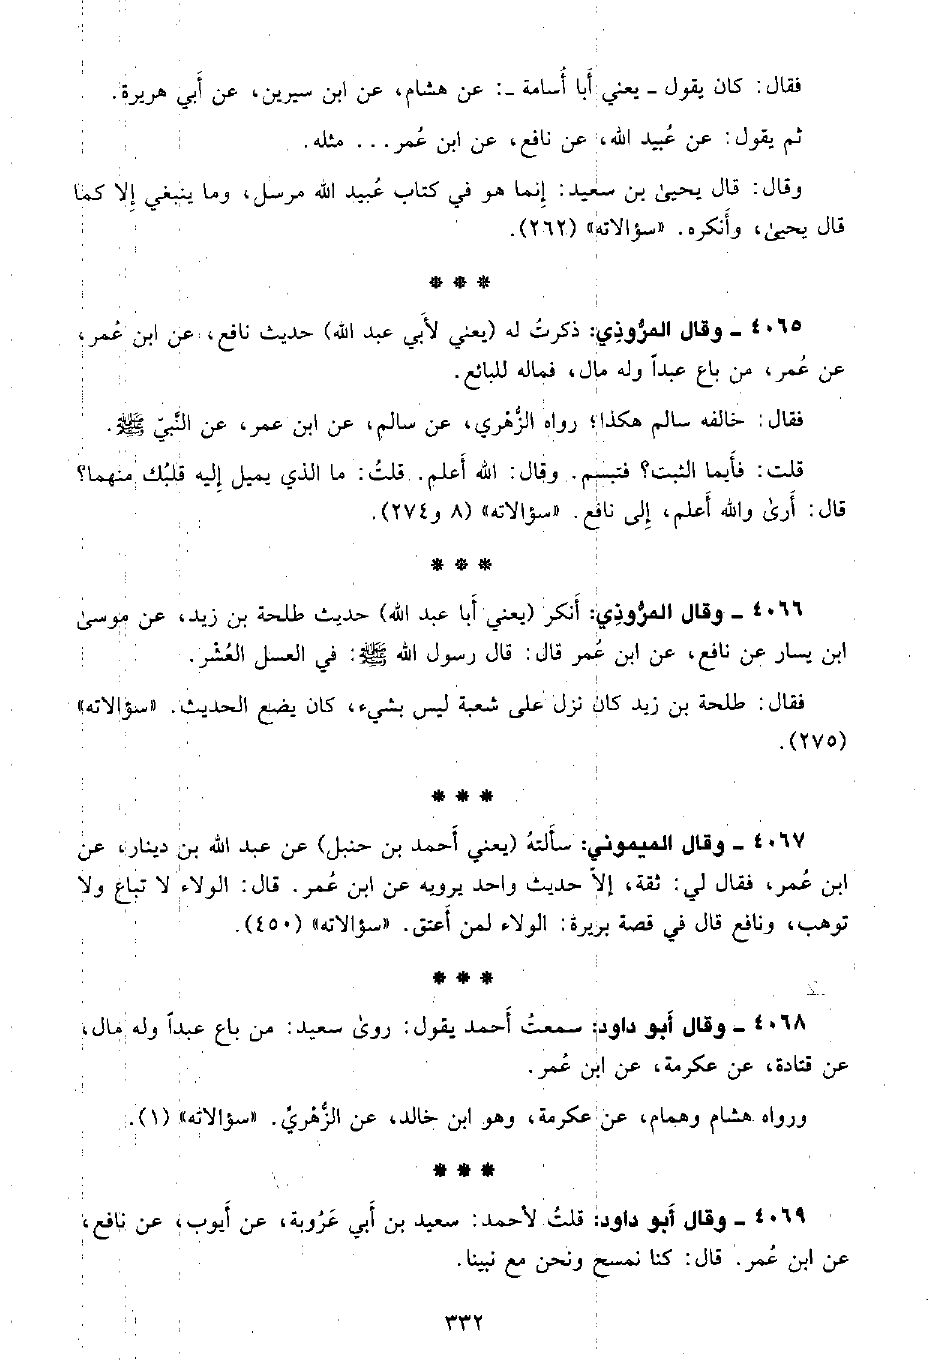 فقال: كان يقول ـ يعني أَبا أُسامة ـ: عن هشام، عن ابن سيرين، عن أَبي هريرة.
ثم يقول: عن عُبيد الله، عن نافع، عن ابن عُمر... مثله.
وقال: قال يحيىٰ بن سعيد: إنما هو في كتاب عُبيد الله مرسل، وما ينبغي إِلا كما
قال يحيىٰ، وأَنكره. «سؤالاته» (٢٦٢).
* * *
٤٠٦٥ ـ وقال المرُّوذِي: ذكرتُ له (يعني لأَبي عبد الله) حديث نافع، عن ابن عُمر،
عن عُمر، من باع عبداً وله مال، فماله للبائع.
فقال: خالفه سالم هكذا؛ رواه الزُّهْري، عن سالم، عن ابن عمر، عن النَّبيّ ﷺ.
قلت: فأَيما الثبت؟ فتبسم. وقال: الله أَعلم. قلتُ: ما الذي يميل إِليه قلبُك منهما؟
قال: أَرىٰ والله أَعلم، إِلى نافع. «سؤالاته» (٨ و٢٧٤).
* * *
٤٠٦٦ ـ وقال المرُّوذِي: أَنكر (يعني أَبا عبد الله) حديث طلحة بن زيد، عن موسىٰ
ابن يسار عن نافع، عن ابن عُمر قال: قال رسول الله ﷺ: في العسل العُشْر.
فقال: طلحة بن زيد كان نزل على شعبة ليس بشيء، كان يضع الحديث. «سؤالاته»
(٢٧٥).
* * *
٤٠٦٧ ـ وقال الميموني: سأَلتهُ (يعني أَحمد بن حنبل) عن عبد الله بن دينار، عن
ابن عُمر، فقال لي: ثقة، إلاّ حديث واحد يرويه عن ابن عُمر. قال: الولاء لا تباع ولا
توهب، ونافع قال في قصة بريرة: الولاء لمن أَعتق. «سؤالاته» (٤٥٠).
* * *
٤٠٦٨ ـ وقال أَبو داود: سمعتُ أَحمد يقول: روىٰ سعيد: من باع عبداً وله مال،
عن قتادة، عن عكرمة، عن ابن عُمر.
ورواه هشام وهمام، عن عكرمة، وهو ابن خالد، عن الزُّهْريّ. «سؤالاته» (١).
* * *
٤٠٦٩ ـ وقال أَبو داود: قلتُ لأحمد: سعيد بن أَبي عَرُوبة، عن أَيوب، عن نافع،
عن ابن عُمر. قال: كنا نمسح ونحن مع نبينا.
٣٣٢